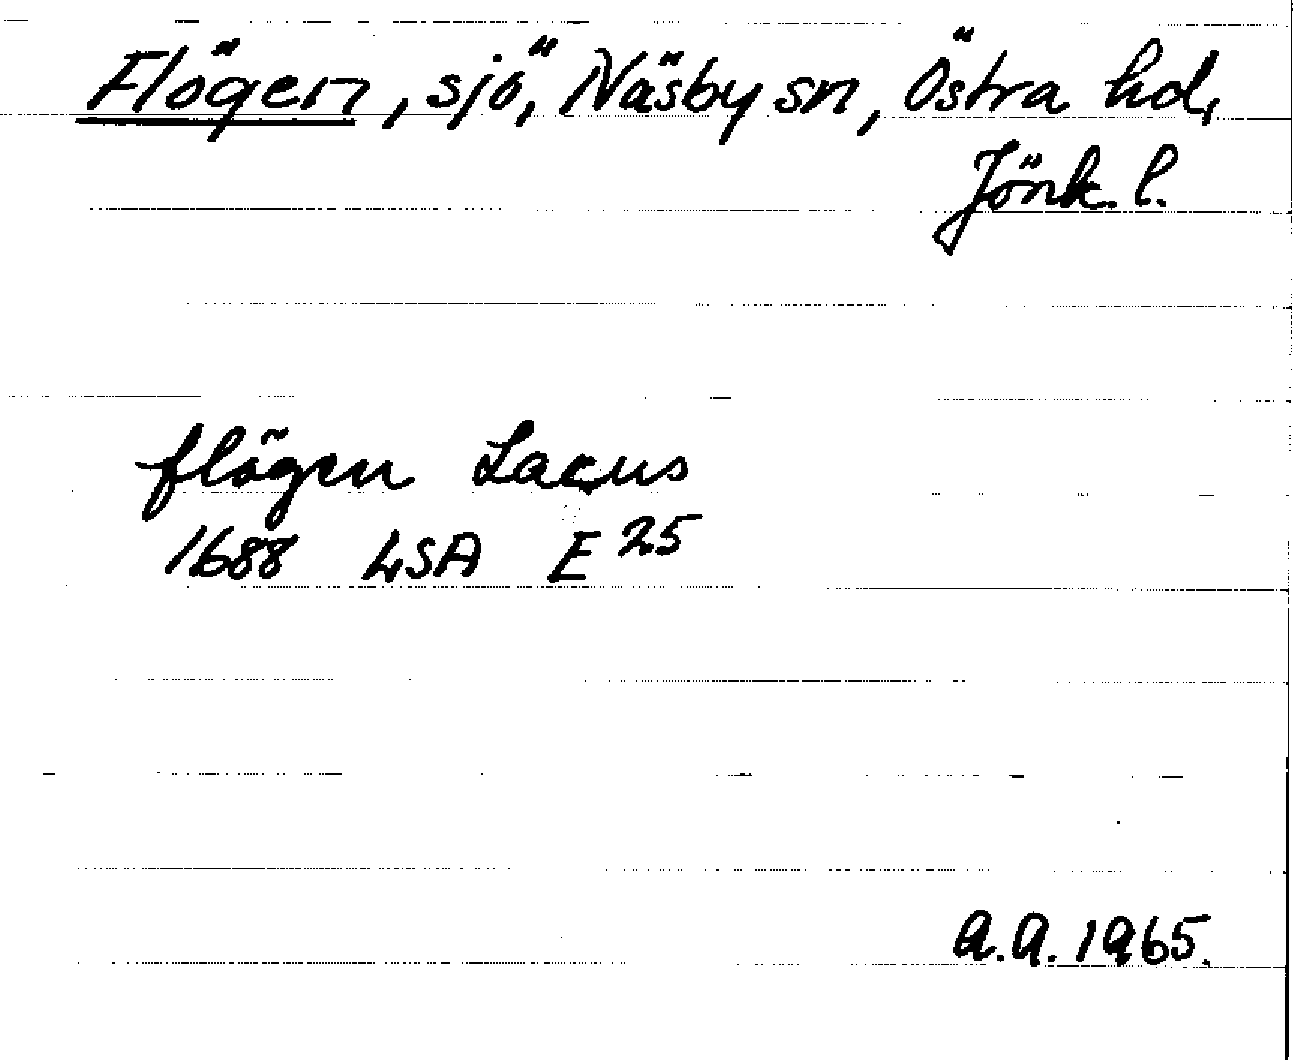 Flögen, sjö, Näsby sn, Östra hd,
Jönk. l.
flögen Lacus
1688 LSA E 25
A.A. 1965.